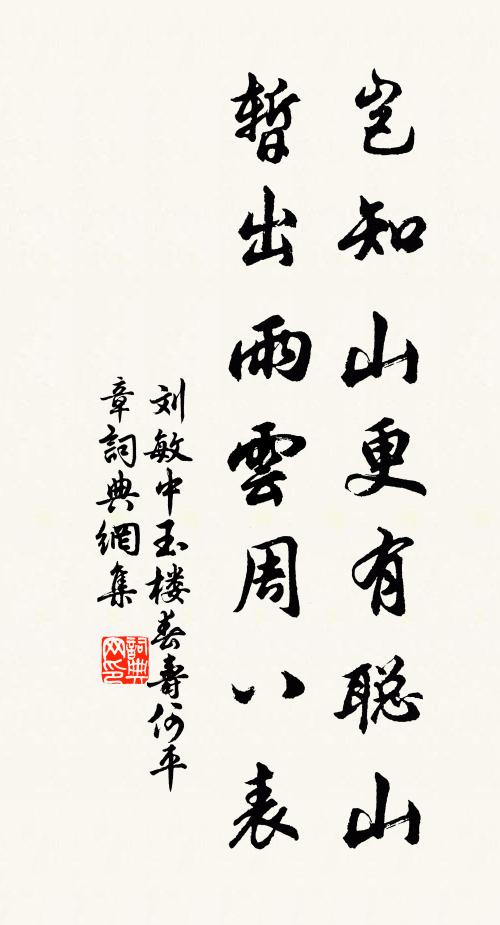 岂知山更有聪山
暫出雨雲周八表
刘敏中玉楼春寿何平
章詞典網集
詞典网印